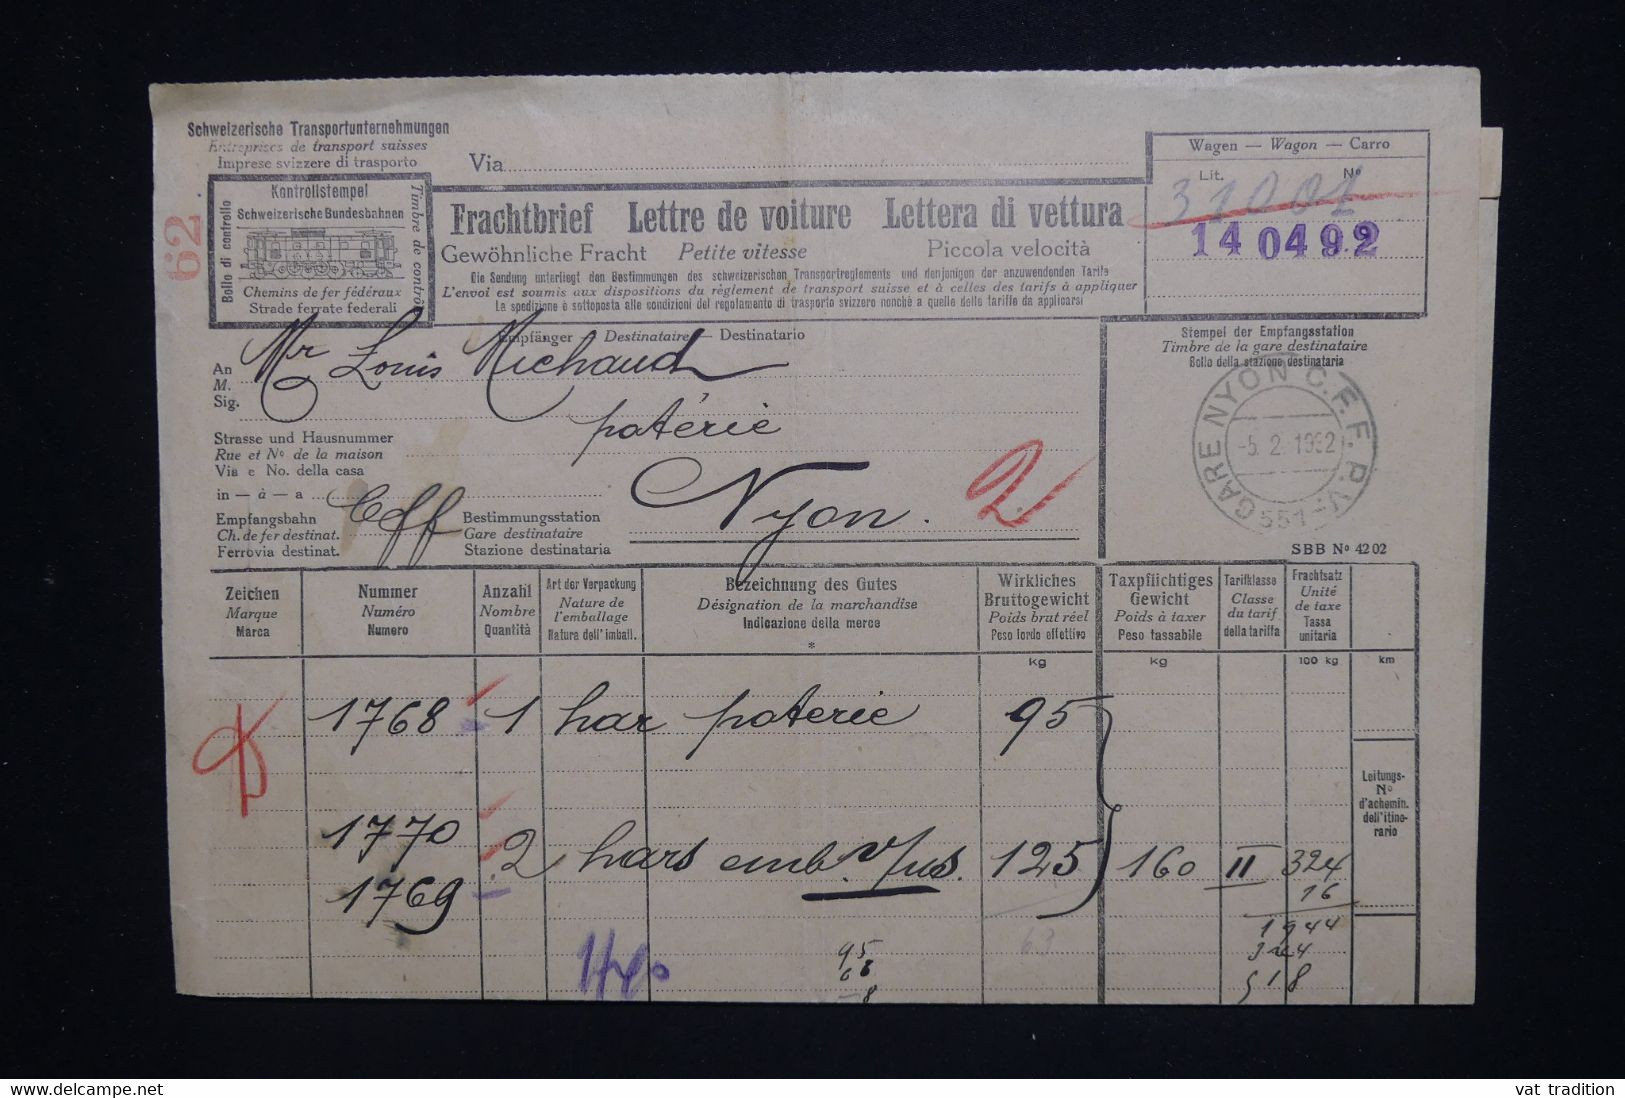 Schweizerische Transportunternehmungen
Entreprises de transport suisses
Imprese svizzere di trasporto
Via
Wagen — Wagon — Carro
Lit. Nº
31001
140492
62
Kontrollstempel
Schweizerische Bundesbahnen
Bollo di controllo
Timbre de contrôle
Chemins de fer fédéraux
Strade ferrate federali
Frachtbrief Lettre de voiture Lettera di vettura
Gewöhnliche Fracht Petite vitesse Piccola velocità
Die Sendung unterliegt den Bestimmungen des schweizerischen Transportreglements und denjenigen der anzuwendenden Tarife
L'envoi est soumis aux dispositions du règlement de transport suisse et à celles des tarifs à appliquer
La spedizione è sottoposta alle condizioni del regolamento di trasporto svizzero nonchè a quelle delle tariffe da applicarsi
Empfänger — Destinataire — Destinatario
An
M.
Sig.
Mr Louis Michaud
potérie
Strasse und Hausnummer
Rue et Nº de la maison
Via e No. della casa
in — à — a
Empfangsbahn
Ch. de fer destinat.
Ferrovia destinat.
Cff
Bestimmungsstation
Gare destinataire
Stazione destinataria
Nyon.
2
Stempel der Empfangsstation
Timbre de la gare destinataire
Bollo della stazione destinataria
GARE NYON C.F.F. P.V.
-5. 2. 1932
551
SBB Nº 4202
Zeichen
Marque
Marca
Nummer
Numéro
Numero
Anzahl
Nombre
Quantità
Art der Verpackung
Nature de l'emballage
Natura dell' imball.
Bezeichnung des Gutes
Désignation de la marchandise
Indicazione della merce
*
Wirkliches Bruttogewicht
Poids brut réel
Peso lordo effettivo
Taxpflichtiges Gewicht
Poids à taxer
Peso tassabile
Tarifklasse
Classe du tarif
della tariffa
Frachtsatz
Unité de taxe
Tassa unitaria
kg kg 100 kg km
1768 1 har poterie 95
1770 2 hars emb. 125 160 II 324
1769 16
1944
324
518
95
63
Leitungs-
Nº
d'achemin.
dell'itine-
rario
vat tradition